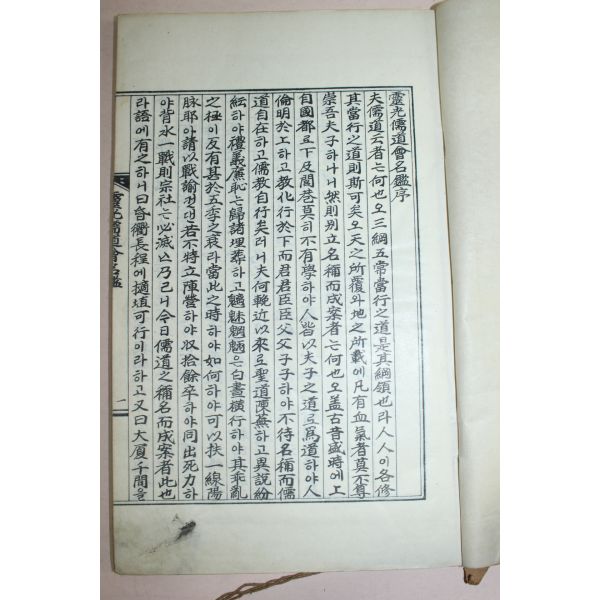 靈光儒道會名鑑序
夫儒道云者는何也오三綱五常當行之道是其綱領也라人人이各修
其當行之道則斯可矣오天之所覆와地之所載에凡有血氣者莫不尊
崇吾夫子하나니然則別立名稱而成案者는何也오盖古昔盛時에上
自國都로下及閭巷莫不有學하야人皆以夫子之道로爲道하야人
倫明於上하고敎化行於下而君君臣臣父父子子하야不待名稱而儒
道自在하고儒敎自行矣러니夫何輓近以來로聖道陳蕪하고異說紛
紜하야禮義廉恥는歸諸埋葬하고魑魅魍魎은白晝橫行하야其乖亂
之極이反有甚於五季之衰라當此之時하야如何하야可以扶一線陽
脉耶아請以戰諭컨대若不特立陣營하야收拾餘卒하야同出死力하
야背水一戰則宗社는必滅亡乃已니今日儒道之稱名而成案者此也
라語에有之하니曰昏衢長程에擿埴可行이라하고又曰大厦千間을
靈光儒道會名鑑
一